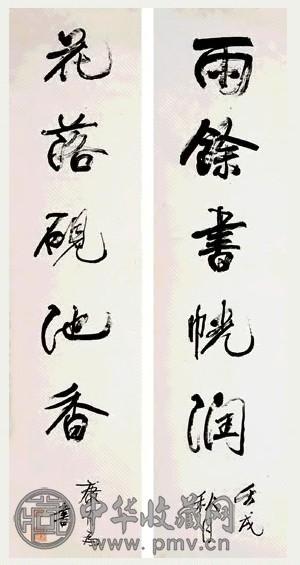 雨餘書幌潤
壬戌
秋月
花落硯池香
中华收藏网
www.pmv.cn